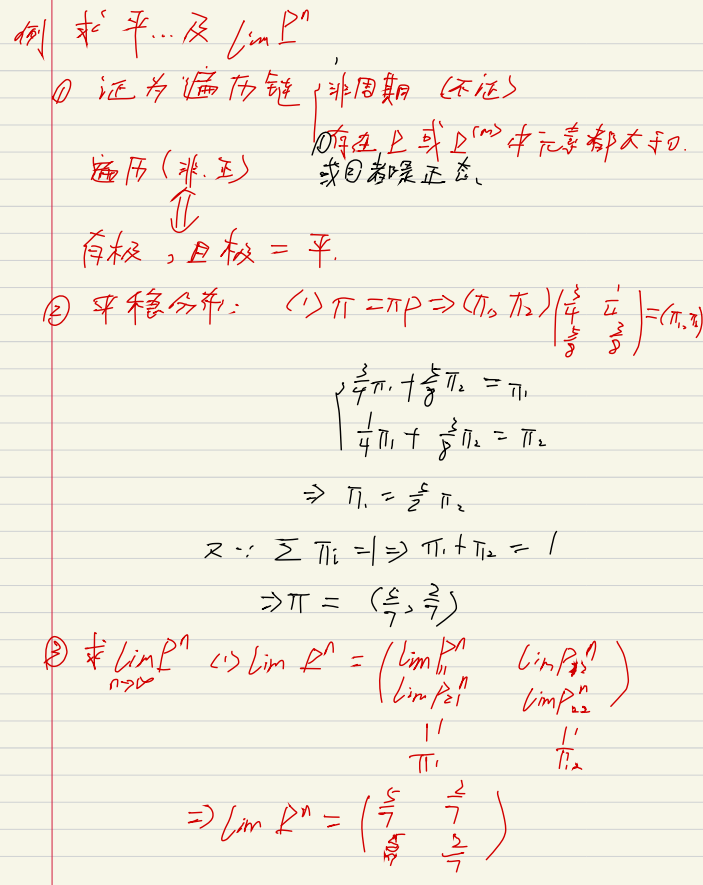 例 求平...及 lim P^n
① 证为遍历链 { 非周期 (不证)
①存在P或P^(m)中元素都大于0.
遍历(非.正) 或②都是正态、
⇕
有极，且极=平.
② 平稳分布: (1) π=πP ⇒ (π₁, π₂) (3/4 1/4 5/8 3/8) = (π₁, π₂)
{ 3/4 π₁ + 5/8 π₂ = π₁
1/4 π₁ + 3/8 π₂ = π₂
⇒ π₁ = 5/2 π₂
又∵ Σ πi = 1 ⇒ π₁ + π₂ = 1
⇒ π = (5/7, 2/7)
③ 求 lim P^n (1) lim P^n = ( lim P₁₁^n lim P₁₂^n
n→∞ lim P₂₁^n lim P₂₂^n )
|| ||
π₁ π₂
⇒ lim P^n = ( 5/7 2/7
5/7 2/7 )